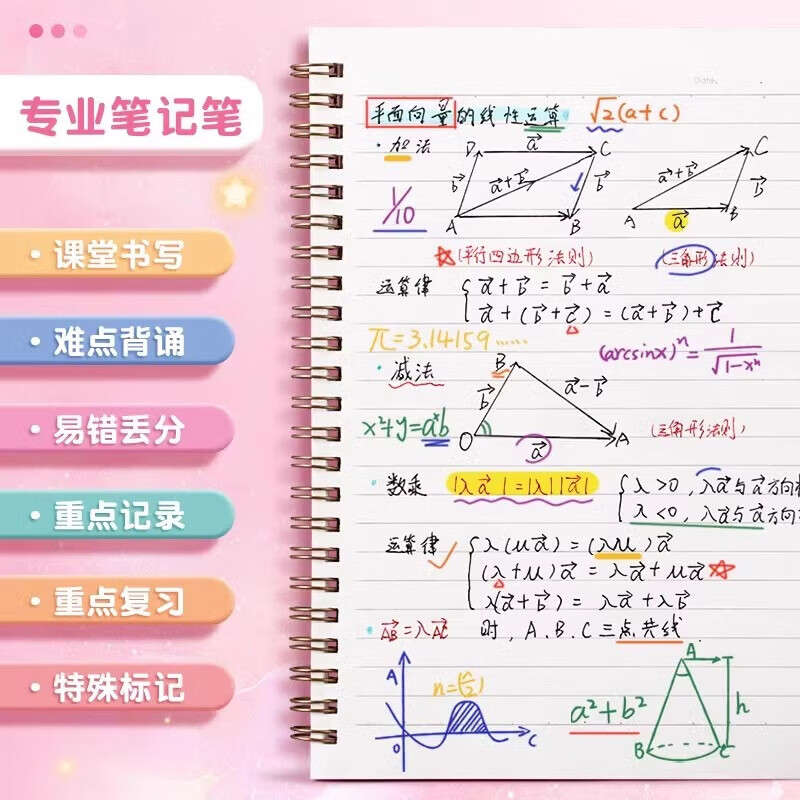 专业笔记笔
·课堂书写
·难点背诵
·易错丢分
·重点记录
·重点复习
·特殊标记
平面向量的线性运算 √2(a+c)
·加法
D a⃗ C
b⃗ a⃗+b⃗ b⃗
A B
C
a⃗+b⃗ b⃗
A a⃗ B
1/10
☆(平行四边形法则) (三角形法则)
运算律 { a⃗+b⃗=b⃗+a⃗
a⃗+(b⃗+c⃗)=(a⃗+b⃗)+c⃗
π=3.14159…… (arcsinx)ⁿ=1/√1-xⁿ
·减法
B
b⃗ a⃗-b⃗
O a⃗ A
x²+y=aˣb
(三角形法则)
·数乘 |λa⃗|=|λ||a⃗| { λ>0,λa⃗与a⃗方向
λ<0,λa⃗与a⃗方向
运算律 { λ(μa⃗)=(λμ)a⃗
(λ+μ)a⃗=λa⃗+μa⃗☆
λ(a⃗+b⃗)=λa⃗+λb⃗
·AB⃗=λAC⃗ 时,A.B.C三点共线.
A
O C
a²+b²
A
h
B C